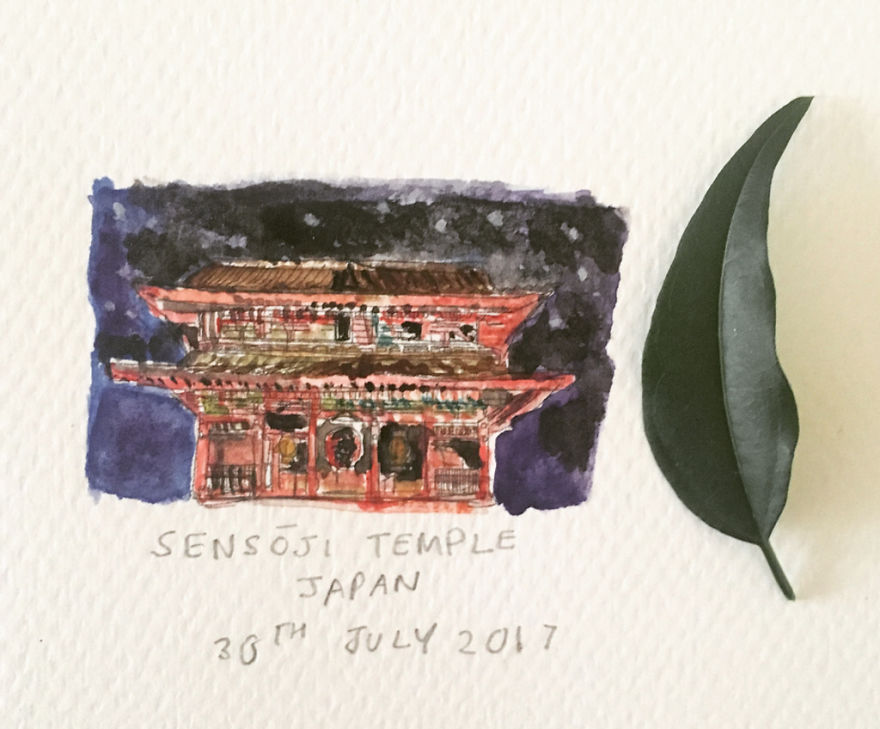 SENSŌJI TEMPLE
JAPAN
30TH JULY 2017